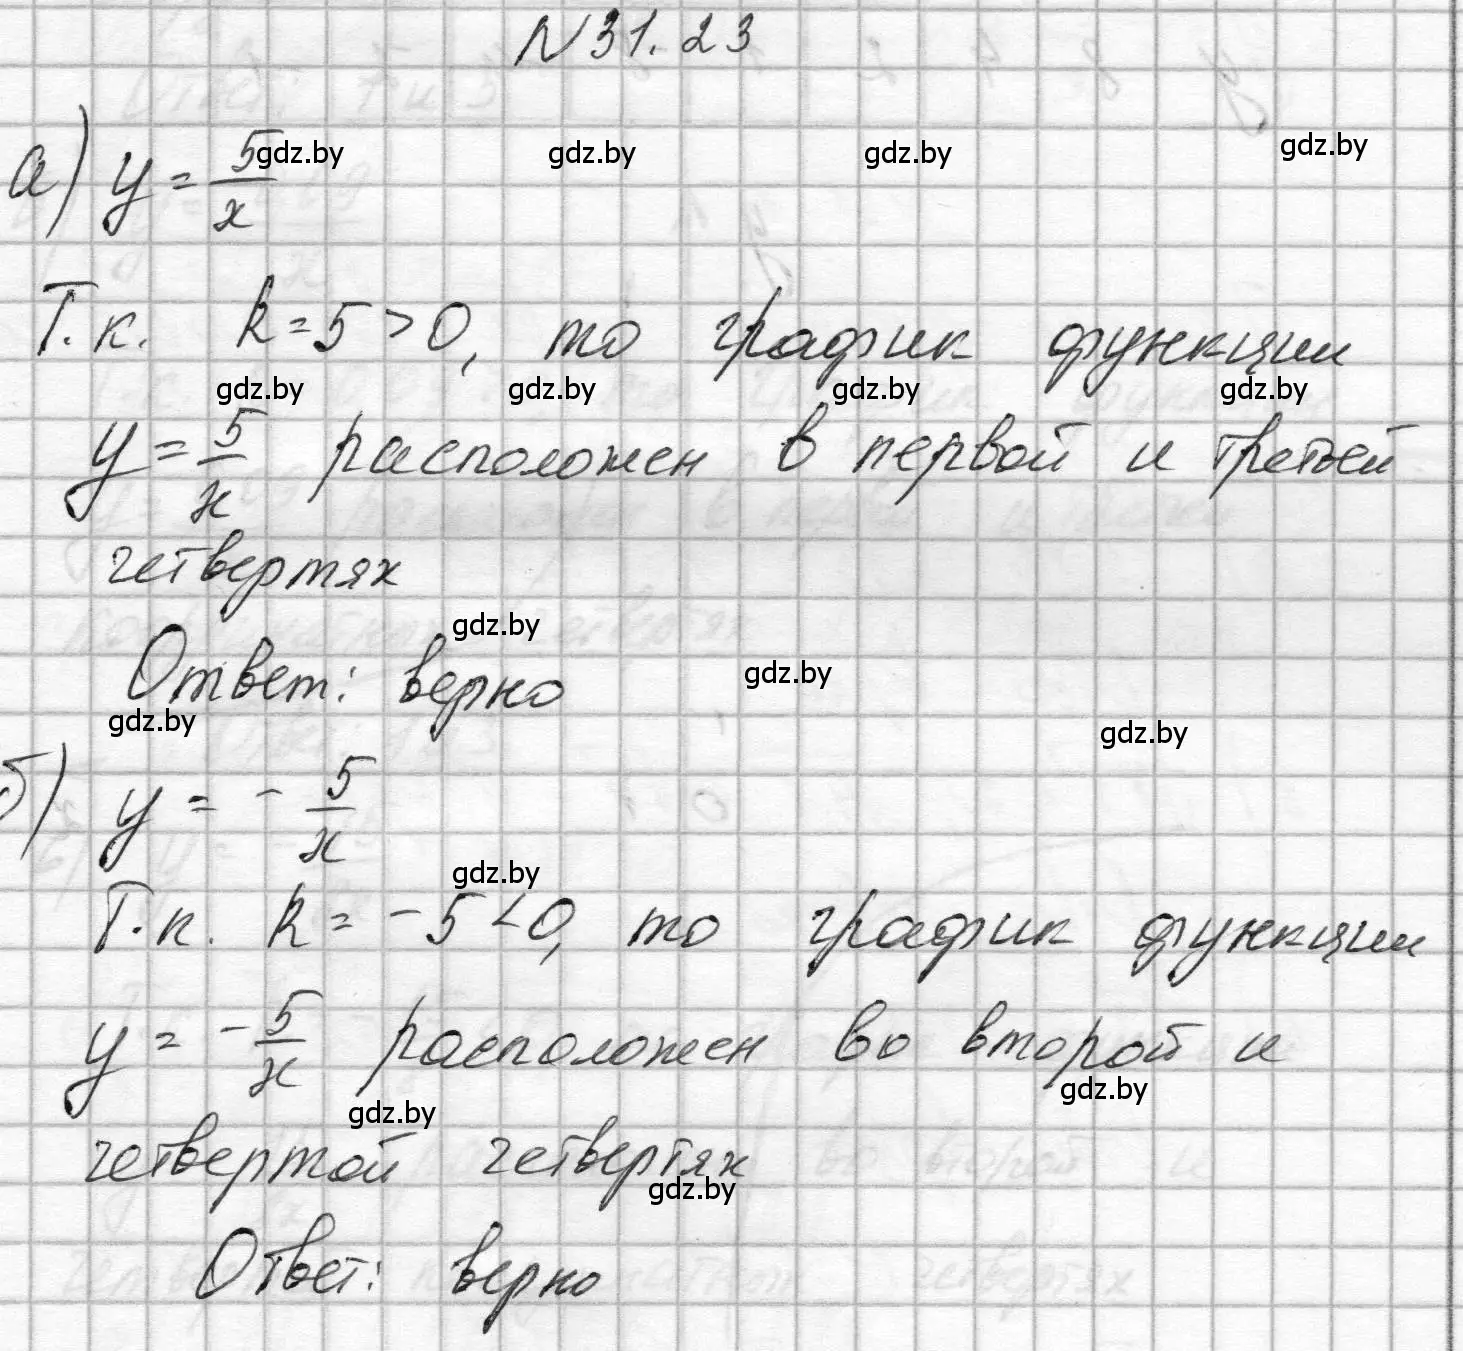 N31.23
gdz.by gdz.by gdz.by gdz.by
а) y = 5/x
Т.к. k = 5 > 0, то график функции
gdz.by gdz.by gdz.by gdz.by
y = 5/x расположен в первой и третьей
четвертях
gdz.by
Ответ: верно
gdz.by
gdz.by
gdz.by
б) y = - 5/x
gdz.by
Т.к. k = -5 < 0, то график функции
y = - 5/x расположен во второй и
gdz.by
gdz.by
четвертой четвертях
gdz.by
Ответ: верно